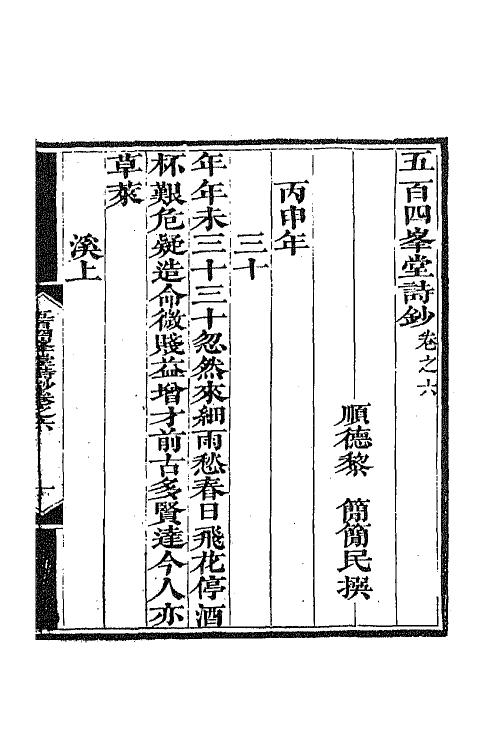 五百四峯堂詩鈔卷之六
順德黎 簡簡民撰
丙申年
三十
年年未三十三十忽然來細雨愁春日飛花停酒
杯艱危疑造命微賤益增才前古多賢達今人亦
草萊
溪上
五百四峯堂詩鈔卷之六 一